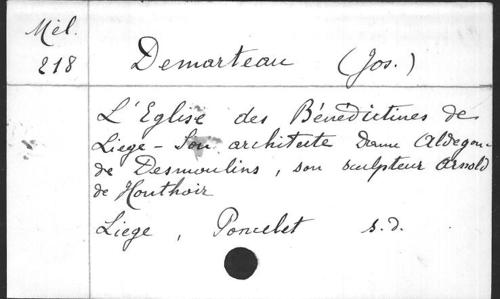 Mél.
218
Demarteau (Jos.)
L'Eglise des Bénédictines de
Liège - Son architecte Dame Aldegon-
de Desmoulins, son sculpteur Arnold
de Honthoir
Liege, Poncelet s.d.